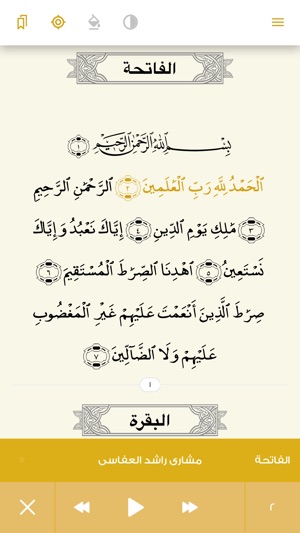 الفاتحة
بِسْمِ ٱللَّهِ ٱلرَّحْمَٰنِ ٱلرَّحِيمِ ١
ٱلْحَمْدُ لِلَّهِ رَبِّ ٱلْعَٰلَمِينَ ٢ ٱلرَّحْمَٰنِ ٱلرَّحِيمِ
٣ مَٰلِكِ يَوْمِ ٱلدِّينِ ٤ إِيَّاكَ نَعْبُدُ وَإِيَّاكَ
نَسْتَعِينُ ٥ ٱهْدِنَا ٱلصِّرَٰطَ ٱلْمُسْتَقِيمَ ٦
صِرَٰطَ ٱلَّذِينَ أَنْعَمْتَ عَلَيْهِمْ غَيْرِ ٱلْمَغْضُوبِ
عَلَيْهِمْ وَلَا ٱلضَّآلِّينَ ٧
١
البقرة
الفاتحة مشاری راشد العفاسی
٢